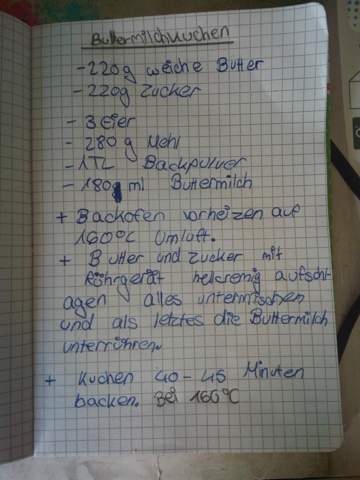 Buttermilchkuchen
- 220g weiche Butter
- 220g Zucker
- 3 Eier
- 280 g Mehl
- 1TL Backpulver
- 180 ml Buttermilch
+ Backofen vorheizen auf
160°C Umluft.
+ Butter und Zucker mit
Rührgerät hellcremig aufschl
agen alles untermischen
und als letztes die Buttermilch
unterrühren.
+ Kuchen 40 - 45 Minuten
backen. Bei 160°C